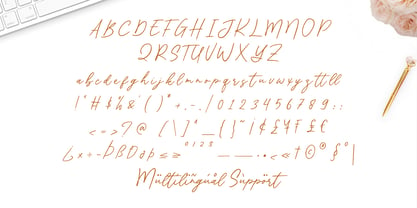 ABCDEFGHIJKLMNOP
QRSTUVWXYZ
abcdefghijklmnopqrstuvwxyzttll
! " # $ % & ' ( ) * + , - . / 0 1 2 3 4 5 6 7 8 9 : ;
< = > ? @ [ \ ] ^ _ { | } ~ ¡ ¢ £ ¥
0 1 2 3
Multilingual Support